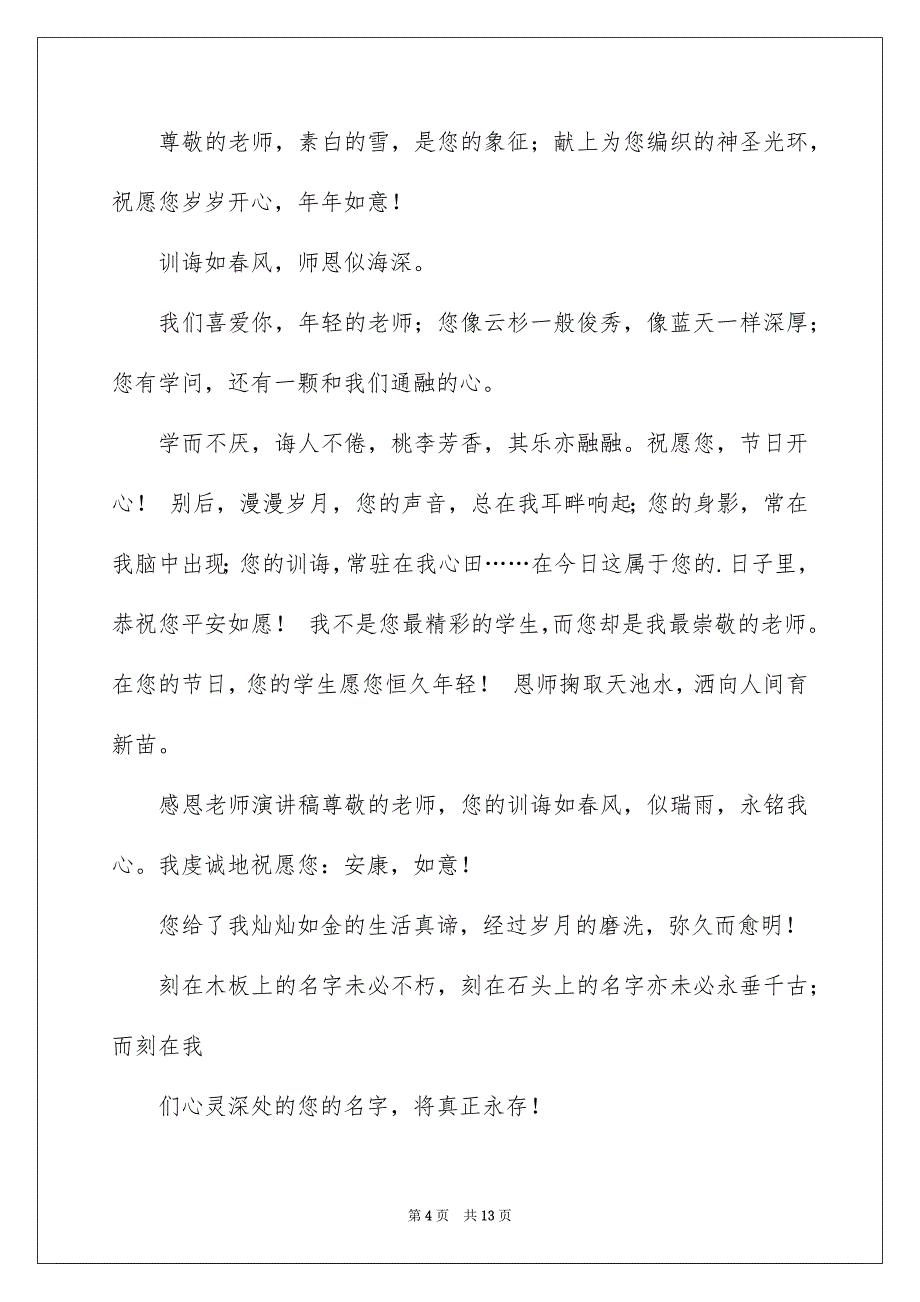 尊敬的老师，素白的雪，是您的象征；献上为您编织的神圣光环，
祝愿您岁岁开心，年年如意！
训诲如春风，师恩似海深。
我们喜爱你，年轻的老师；您像云杉一般俊秀，像蓝天一样深厚；
您有学问，还有一颗和我们通融的心。
学而不厌，诲人不倦，桃李芳香，其乐亦融融。祝愿您，节日开
心！ 别后，漫漫岁月，您的声音，总在我耳畔响起；您的身影，常在
我脑中出现；您的训诲，常驻在我心田……在今日这属于您的.日子里，
恭祝您平安如愿！ 我不是您最精彩的学生，而您却是我最崇敬的老师。
在您的节日，您的学生愿您恒久年轻！ 恩师掬取天池水，洒向人间育
新苗。
感恩老师演讲稿尊敬的老师，您的训诲如春风，似瑞雨，永铭我
心。我虔诚地祝愿您：安康，如意！
您给了我灿灿如金的生活真谛，经过岁月的磨洗，弥久而愈明！
刻在木板上的名字未必不朽，刻在石头上的名字亦未必永垂千古；
而刻在我
们心灵深处的您的名字，将真正永存！
第 4 页 共 13 页